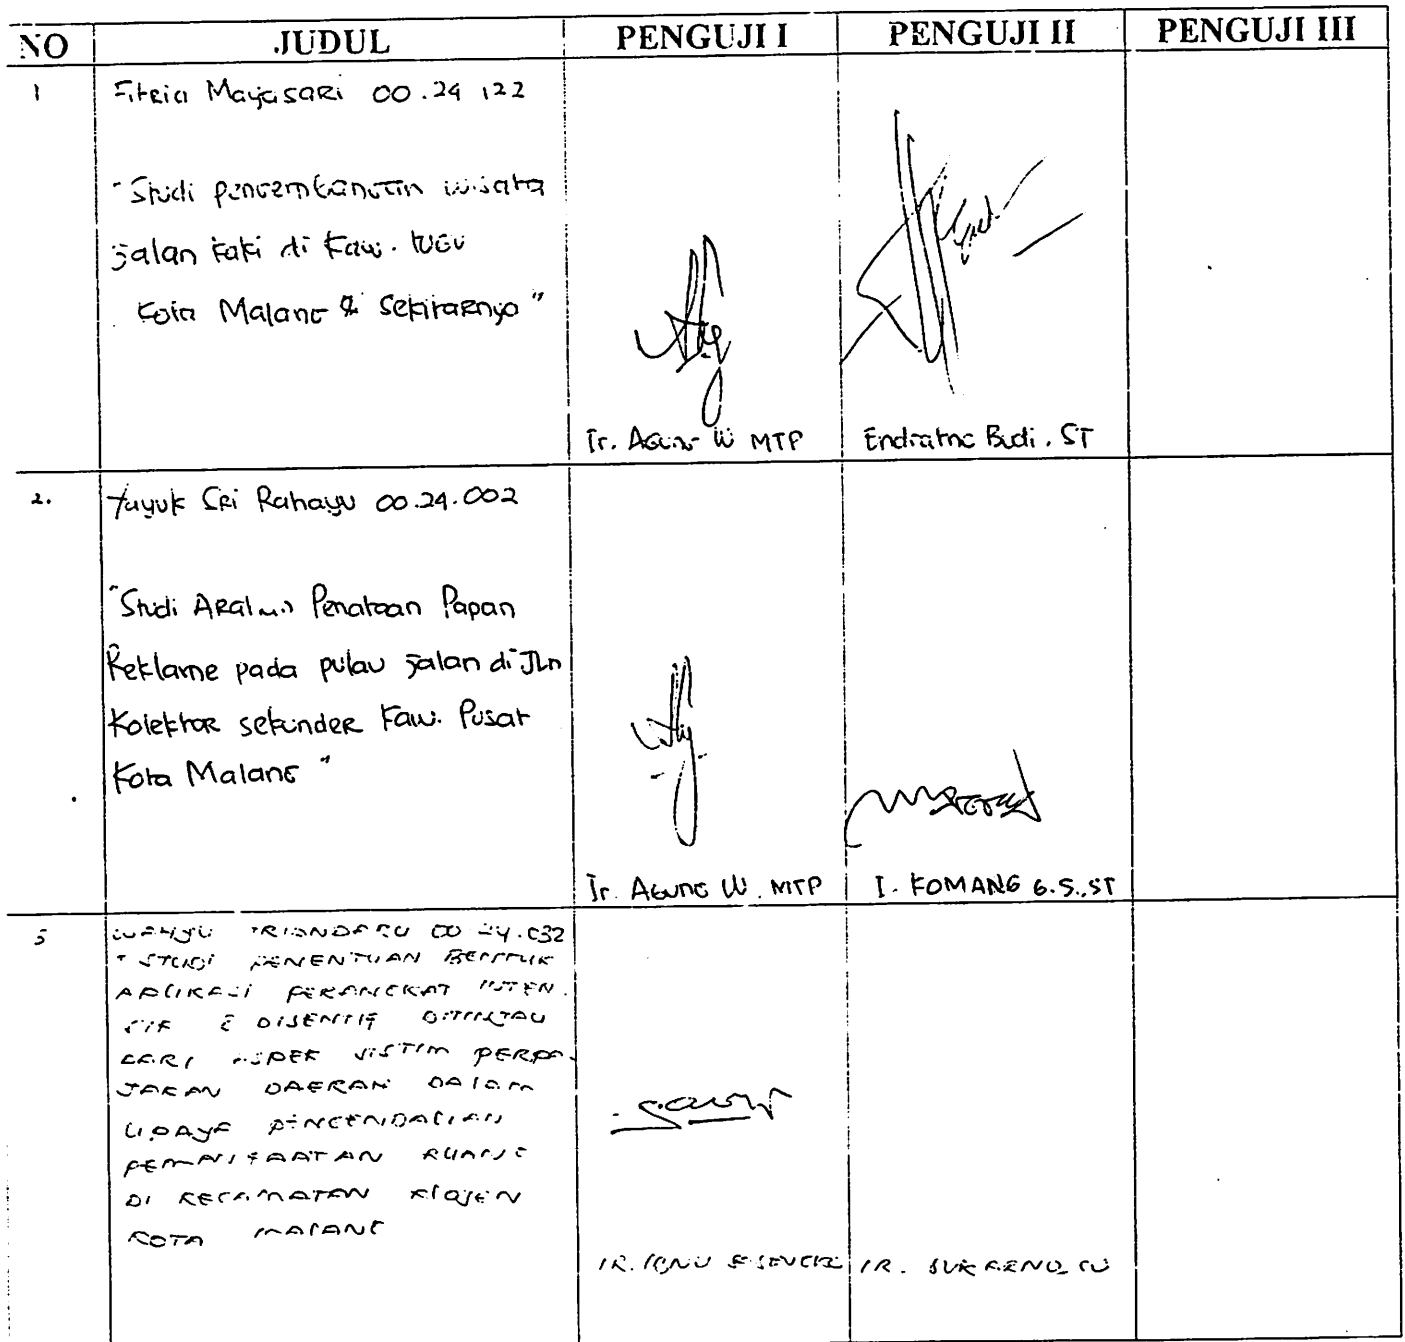 NO JUDUL PENGUJI I PENGUJI II PENGUJI III
1 Fitria Mayasari 00.24 122
"Studi pengembangan wisata
jalan kaki di kaw. tugu
Kota Malang & sekitarnya"
Ir. Agung W MTP Endratno Budi. ST
2. Yayuk Sri Rahayu 00.24.002
"Studi Penataan Papan
Reklame pada pulau jalan di Jln
Kolektor sekunder kaw. Pusat
Kota Malang"
Ir. Agung W. MTP I. KOMANG G.S.,ST
3 WAHYU TRIANDARU 00 24.032
" STUDI PENENTUAN BENTUK
APLIKASI PERANGKAT INSEN.
TIF & DISENTIF DITINJAU
DARI ASPEK SISTIM PERPA.
JAKAN DAERAH DALAM
UPAYA PENGENDALIAN
PEMANFAATAN RUANG
DI KECAMATAN KLOJEN
KOTA MALANG
IR. IBNU IR.